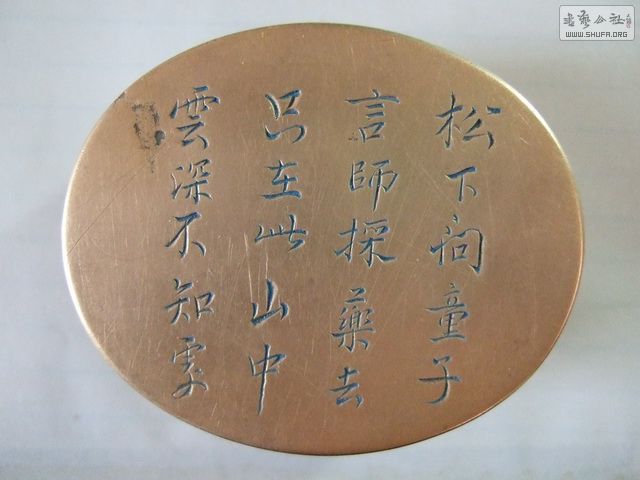 松下问童子
言師採藥去
只在此山中
雲深不知處
書藝公社
WWW.SHUFA.ORG